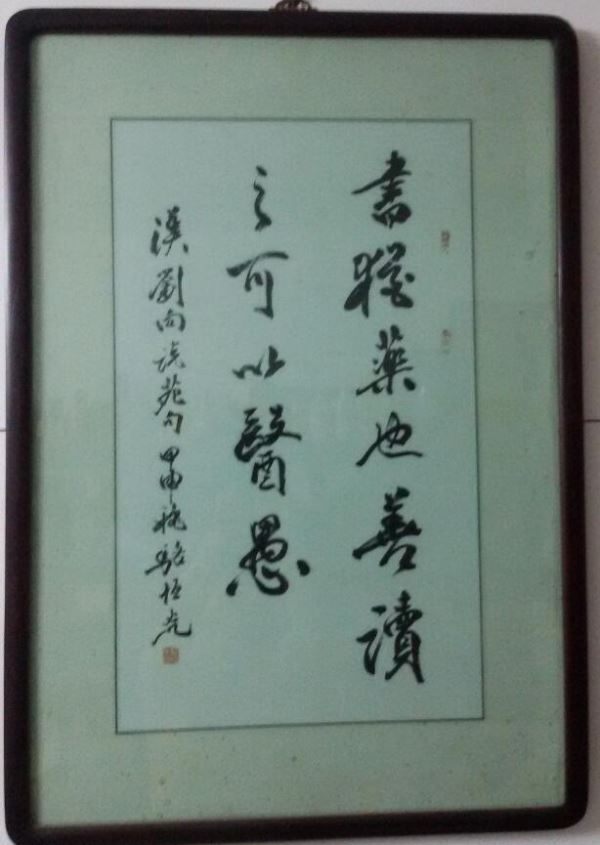 書猶藥也善讀
之可以醫愚
漢劉向說苑句 甲申秋 駱恒光